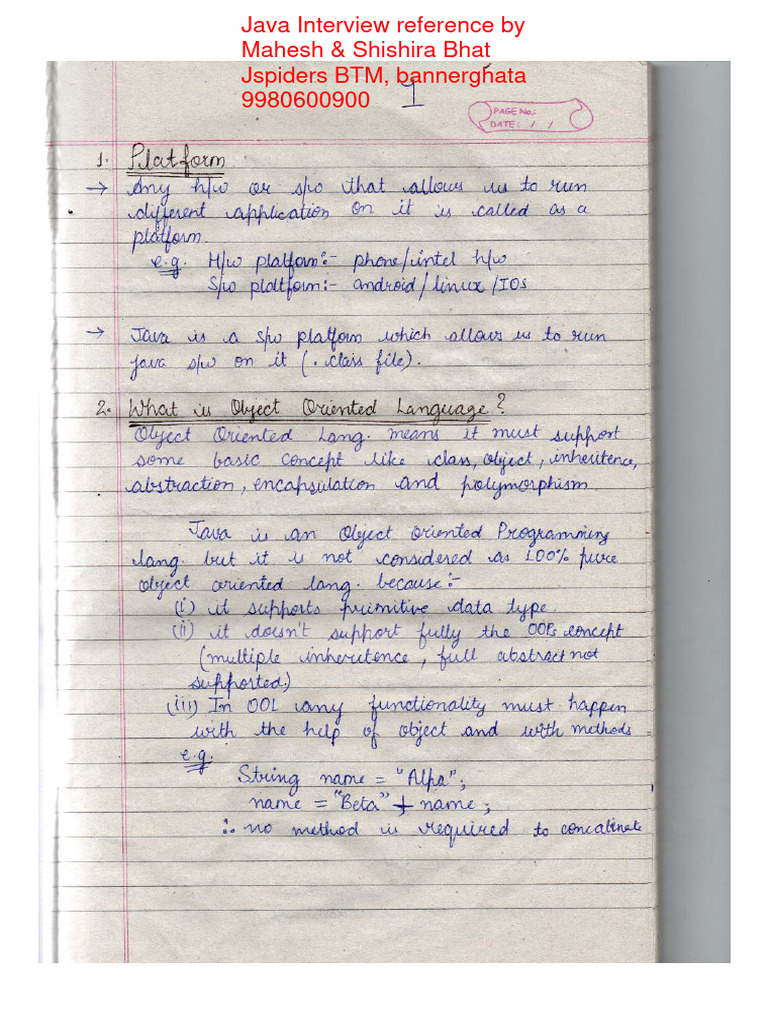 Java Interview reference by
Mahesh & Shishira Bhat
Jspiders BTM, bannerghata
9980600900
1
PAGE No.:
DATE: / /
1. Platform
→ Any h/w or s/w that allows us to run
different application on it is called as a
platform.
e.g. H/w platform:- phone/intel h/w
S/w platform:- android/linux/IOS
→ Java is a s/w platform which allows us to run
java s/w on it (.class file).
2. What is Object Oriented Language?
Object Oriented Lang. means it must support
some basic concept like class, object, inheritence,
abstraction, encapsulation and polymorphism.
Java is an Object oriented Programming
lang. but it is not considered as 100% pure
object oriented lang. because:-
(i) it supports primitive data type.
(ii) it doesn't support fully the OOPs concept
(multiple inheritence, full abstract not
supported.)
(iii) In OOL any functionality must happen
with the help of object and with methods
e.g.
String name = "Alpa";
name = "Beta" + name;
∴ no method is required to concatinate